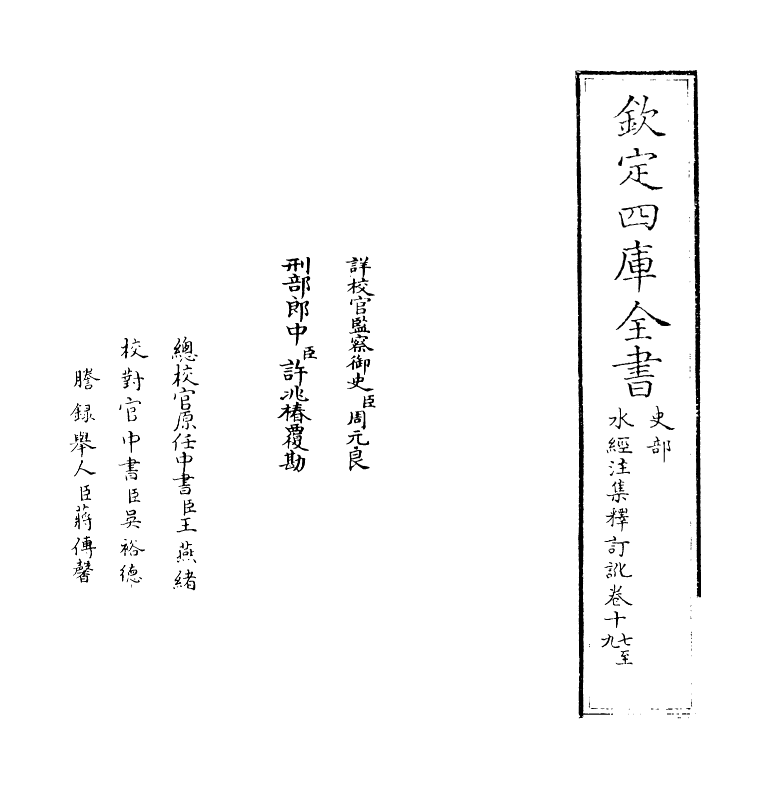 欽定四庫全書
史部
水經注集釋訂訛卷十七至九
詳校官監察御史臣周元良
刑部郎中臣許兆椿覆勘
總校官原任中書臣王燕緒
校對官中書臣吳裕德
謄錄舉人臣蔣傳馨